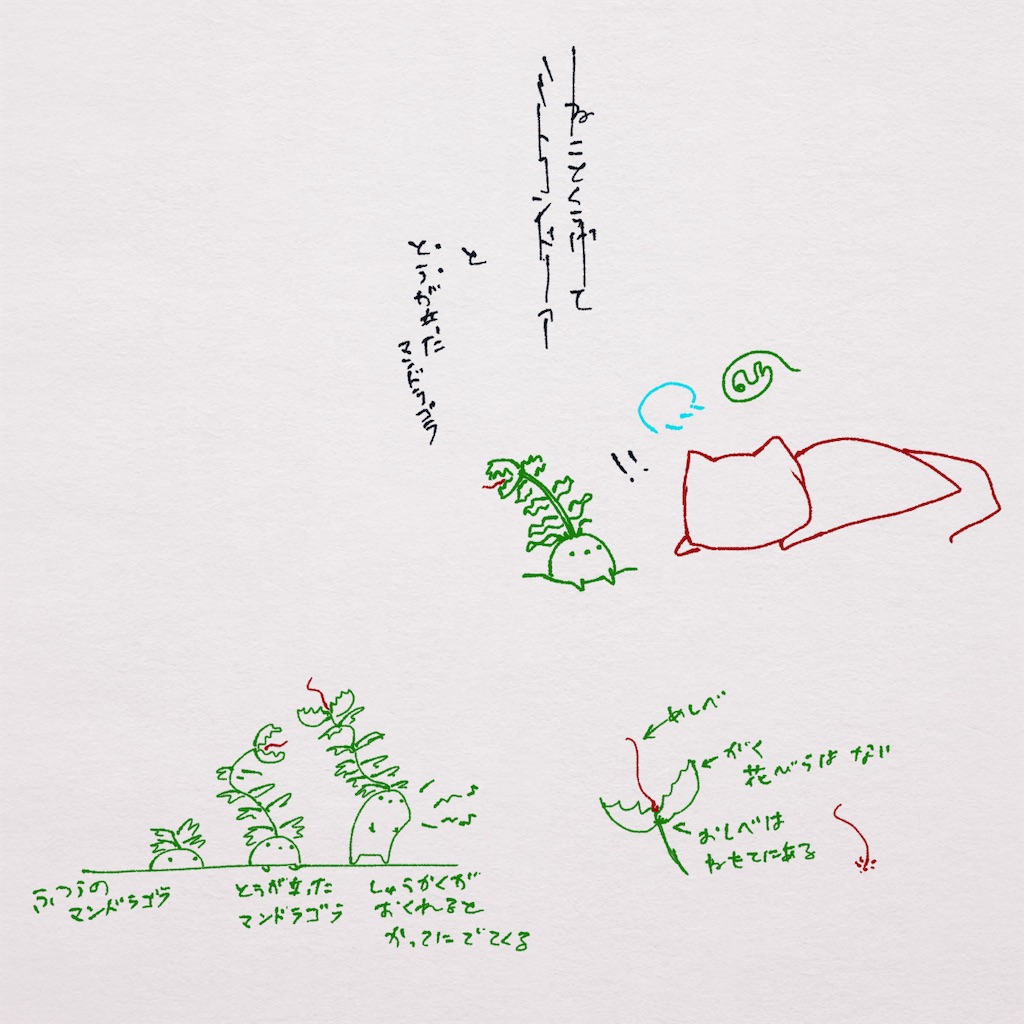 と
とうが立った
マンドラゴラ
!!
ふつうの
マンドラゴラ
とうが立った
マンドラゴラ
しゅうかくが
おくれると
かってにでてくる
めしべ
がく
花びらは ない
おしべは
ねもとにある